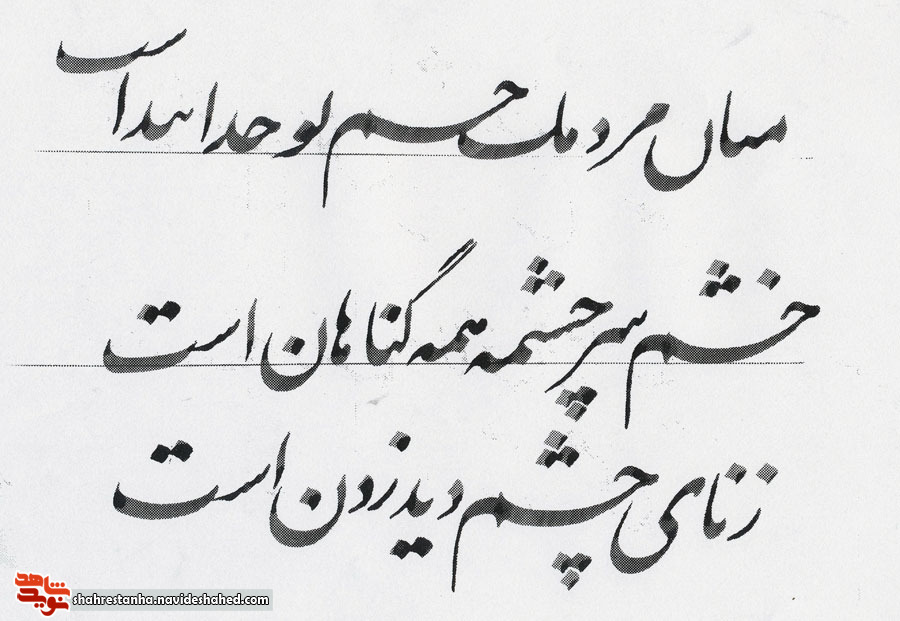 میان مردمک چشم تو خدا پیداست
خشم سرچشمه همه گناهان است
زنای چشم دید زدن است
نوید شاهد
shahrestanha.navideshahed.com